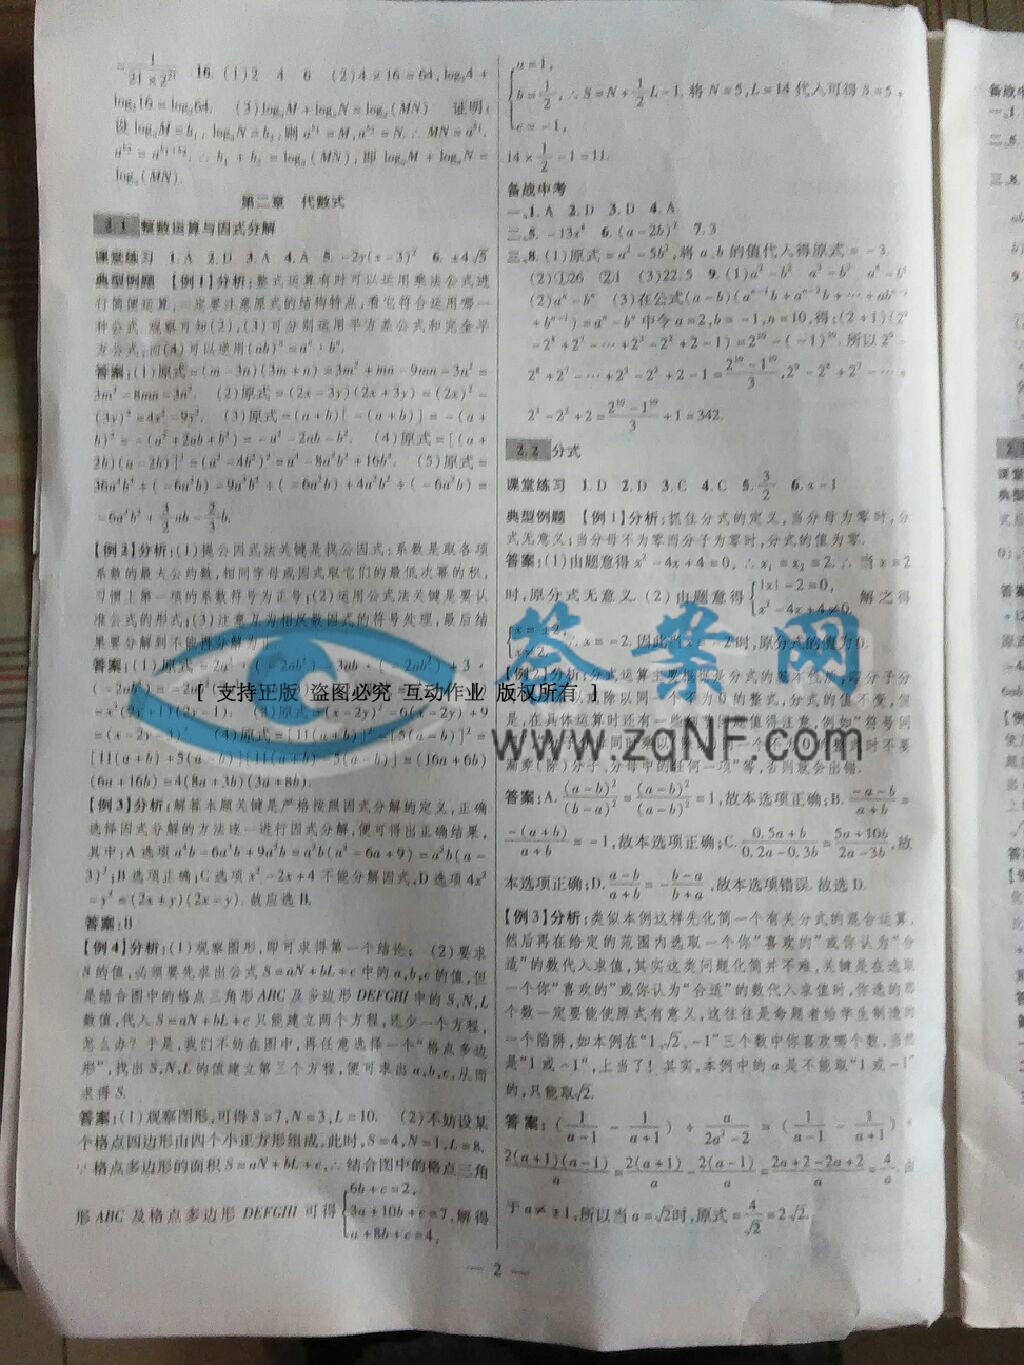 =1/(21×2²¹) 16.(1)2 4 6 (2)4×16=64,log₂4+
log₂16=log₂64. (3)logₐM+logₐN=logₐ(MN) 证明:
设logₐM=b₁,logₐN=b₂,则a^b₁=M,a^b₂=N.∴MN=a^b₁·
∴b₁+b₂=logₐ(MN),即logₐM+logₐN=
logₐ(MN).
第二章 代数式
2.1 整数运算与因式分解
课堂练习 1.A 2.D 3.A 4.A 5.-2y(x-3)² 6.±4√5
典型例题 【例1】分析:整式运算有时可以运用乘法公式进
行简便运算,一定要注意原式的结构特点,看它符合运用哪一
种公式.观察可知(2),(3)可分别运用平方差公式和完全平
方公式;而(4)可以逆用(ab)ⁿ=aⁿ·bⁿ.
答案:(1)原式=(m-3n)(3m+n)=3m²+mn-9mn-3n²=
3m²-8mn-3n². (2)原式=(2x-3y)(2x+3y)=(2x)²-
(3y)²=4x²-9y². (3)原式=(a+b)[-(a+b)]=-(a+
b)²=-(a²+2ab+b²)=-a²-2ab-b². (4)原式=[(a+
2b)(a-2b)]²=(a²-4b²)²=a⁴-8a²b²+16b⁴. (5)原式=
【例2】分析:(1)提公因式法关键是找公因式:系数是取各项
系数的最大公约数,相同字母或因式取它们的最低次幂的积,
习惯上第一项的系数符号为正号;(2)运用公式法关键是要认
准公式的形式;(3)注意互为相反数因式的符号处理,最后结
果要分解到不能再分解为止.
[ 支持正版 盗图必究 互动作业 版权所有 ]
=x²(2y+1)(2y-1). (3)原式=(x-2y)²-6(x-2y)+9
=(x-2y-3)². (4)原式=[11(a+b)]²-[5(a-b)]²=
[11(a+b)+5(a-b)][11(a+b)-5(a-b)]=(16a+6b)
(6a+16b)=4(8a+3b)(3a+8b).
【例3】分析:解答本题关键是严格按照因式分解的定义,正确
选择因式分解的方法逐一进行因式分解,便可得出正确结果,
其中:A选项a⁴b-6a³b+9a²b=a²b(a²-6a+9)=a²b(a-
3)²;B选项正确;C选项x²-2x+4不能分解因式,D选项4x²
-y²=(2x+y)(2x-y).故应选B.
答案:B
【例4】分析:(1)观察图形,即可求得第一个结论; (2)要求
S的值,必须要先求出公式S=aN+bL+c中的a,b,c的值,但
是结合图中的格点三角形ABC及多边形DEFGHI中的S,N,L
数值,代入S=aN+bL+c只能建立两个方程,还少一个方程,
怎么办?于是,我们不妨在图中,再任意选择一个“格点多边
形”,找出S,N,L的值建立第三个方程,便可求出a,b,c,从而
求得S.
答案:(1)观察图形,可得S=7,N=3,L=10. (2)不妨设某
个格点四边形由四个小正方形组成,此时,S=4,N=1,L=8.
∵格点多边形的面积S=aN+bL+c,∴结合图中的格点三角
形ABC及格点多边形DEFGHI可得{6b+c=2, 3a+10b+c=7, a+8b+c=4, 解得
{a=1, b=1/2, c=-1, ∴S=N+1/2L-1.将N=5,L=14代入可得S=5+
14×1/2-1=11.
备战中考
一、1.A 2.D 3.D 4.A
二、5.-13x⁸ 6.(a-2b)² 7.3
三、8.(1)原式=a²-5b²,将a,b的值代入得原式=-3.
(2)①26 ②1 (3)22.5 9.(1)a²-b² a³-b³ a⁴-b⁴
(2)aⁿ-bⁿ (3)在公式(a-b)(aⁿ⁻¹b+aⁿ⁻²b+…+abⁿ⁻¹
+bⁿ⁻¹)=aⁿ-bⁿ中令a=2,b=-1,n=10,得:(2+1)(2⁹
-2⁸+2⁷-…+2³-2²+2-1)=2¹⁰-(-1)¹⁰.所以2⁹-
2⁸+2⁷-…+2³-2²+2-1=(2¹⁰-1¹⁰)/3,2⁹-2⁸+2⁷-…+
2³-2²+2=(2¹⁰-1¹⁰)/3+1=342.
2.2 分式
课堂练习 1.D 2.D 3.C 4.C 5.3/2 6.x-1
典型例题 【例1】分析:抓住分式的定义,当分母为零时,分
式无意义;当分母不为零而分子为零时,分式的值为零.
答案:(1)由题意得x²-4x+4=0,∴x₁=x₂=2.∴当x=2
时,原分式无意义.(2)由题意得{|x|-2=0, x²-4x+4≠0. 解之得
∴x=-2.因此当x=-2时,原分式的值为0.
答案网
www.zqNF.com
渐乘(除)分子、分母中的任何一项”等,否则就会出错.
答案:A.(a-b)²/(b-a)²=(a-b)²/(a-b)²=1,故本选项正确;B.(-a-b)/(a+b)=
-(a+b)/(a+b)=-1,故本选项正确;C.(0.5a+b)/(0.2a-0.3b)=(5a+10b)/(2a-3b),故
本选项正确;D.(a-b)/(a+b)=-(b-a)/(b+a),故本选项错误.故选D.
【例3】分析:类似本例这样先化简一个有关分式的混合运算,
然后再在给定的范围内选取一个你“喜欢的”或你认为“合
适”的数代入求值,其实这类问题化简并不难,关键是在选取
一个你“喜欢的”或你认为“合适”的数代入求值时,你选的那
个数一定要能使原式有意义,这往往是命题者给学生制造的
一个陷阱,如本例在“1,√2,-1”三个数中你喜欢哪个数,当然
是“1或-1”,上当了!其实,本例中的a是不能取“1或-1”
的,只能取√2.
答案:(1/(a-1)-1/(a+1))÷a/(2a²-2)=(1/(a-1)-1/(a+1))·
2(a+1)(a-1)/a=2(a+1)/a-2(a-1)/a=(2a+2-2a+2)/a=4/a.由
于a≠±1,所以当a=√2时,原式=4/√2=2√2.
— 2 —